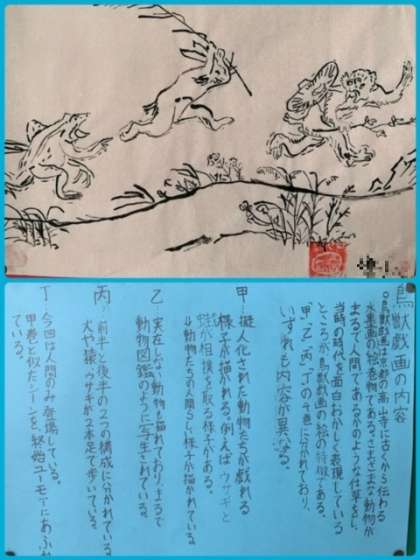 鳥獣戯画の内容
○鳥獣戯画は京都の高山寺に古くから伝わる
水墨画の絵巻物である。さまざまな動物が
まるで人間であるかのような仕草をし、
当時の時代を面白おかしく表現している
ところが鳥獣戯画の絵の特徴である。
「甲、乙、丙、丁の4巻に分かれており、
いずれも内容が異なる。
甲 擬人化された動物たちが戯れる
様子が描かれる。例えばウサギと
蛙が相撲を取る様子がある。
↓動物たちの人間らしい様子が描かれている。
乙 実在しない動物も描れており、まるで
動物図鑑のように写生されている。
丙 前半と後半の2つの構成に分かれている
犬や猿、ウサギが2本足で歩いている。
丁 今回は人間のみ登場している。
甲巻と似たシーンを、終始ユーモアにあふれ
ている。